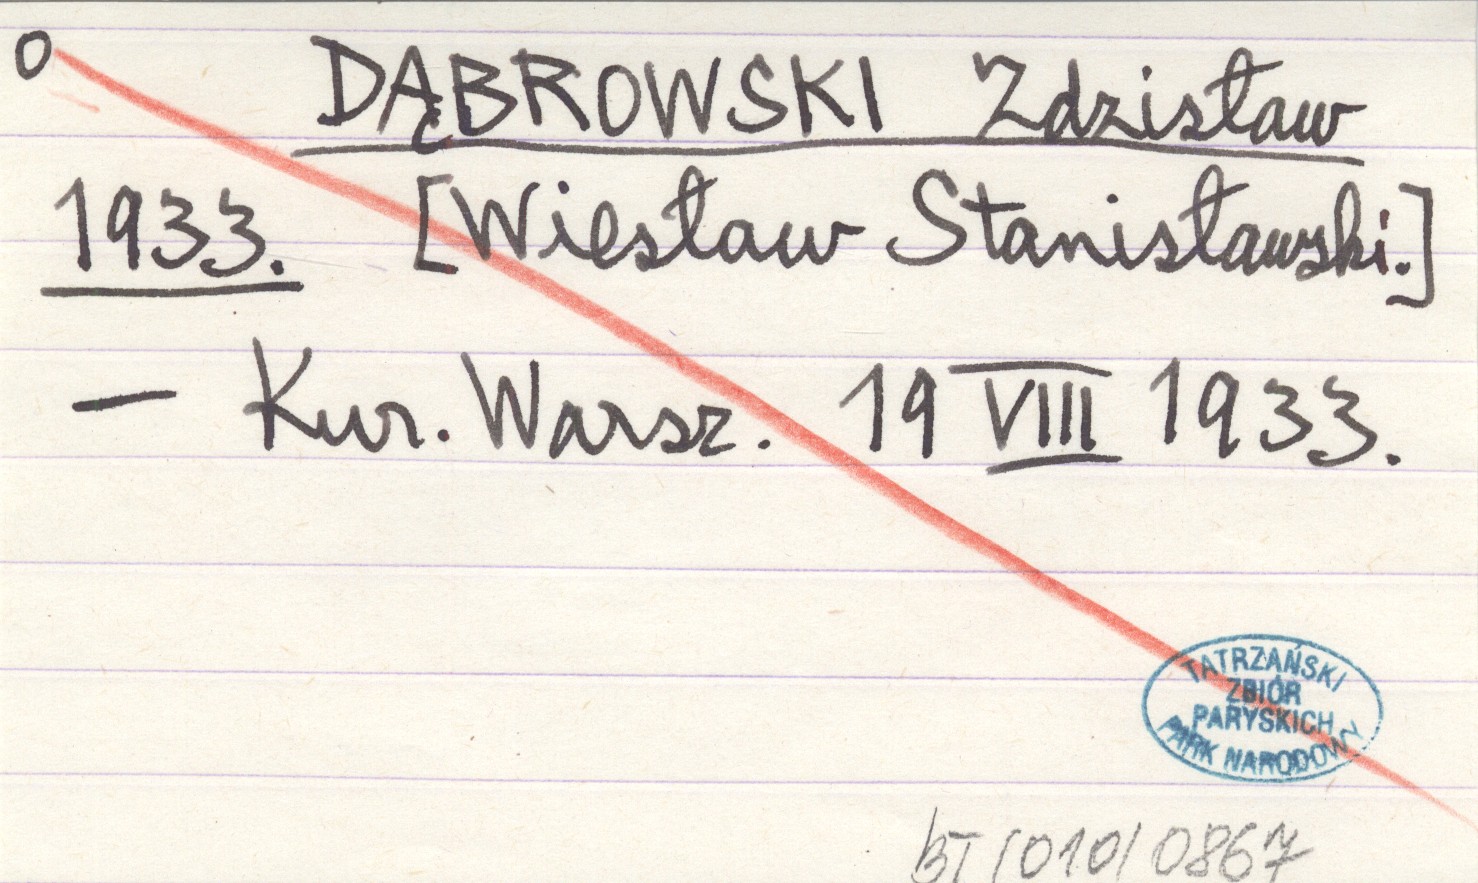 O DĄBROWSKI Zdzisław
1933. [Wiesław Stanisławski.]
— Kur. Warsz. 19 VIII 1933.
TATRZAŃSKI
ZBIÓR
PARYSKICH
PARK NARODOWY
BT/010/0867